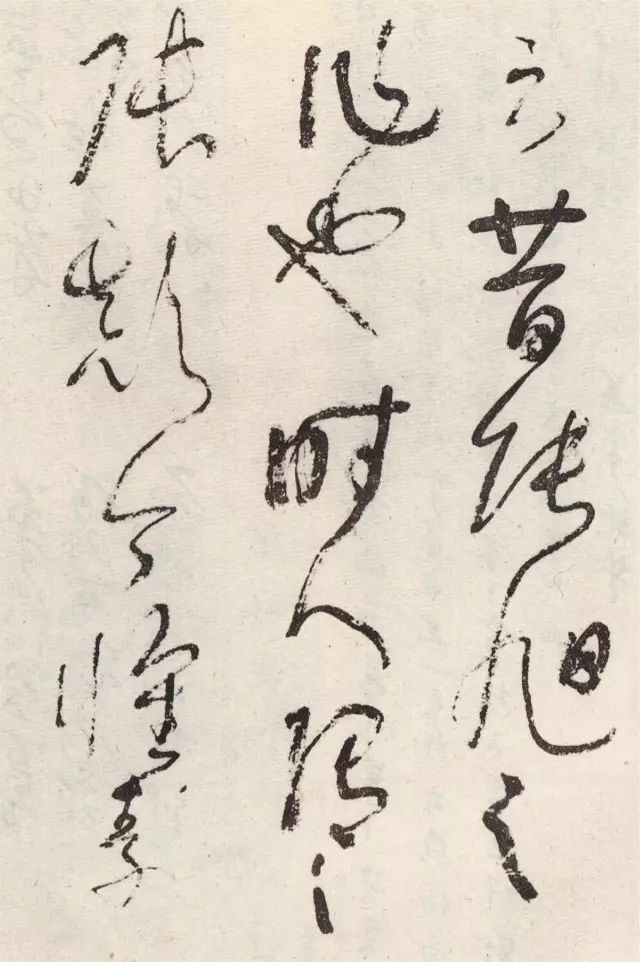 云昔張旭之
作也時人謂之
張顛今懷素